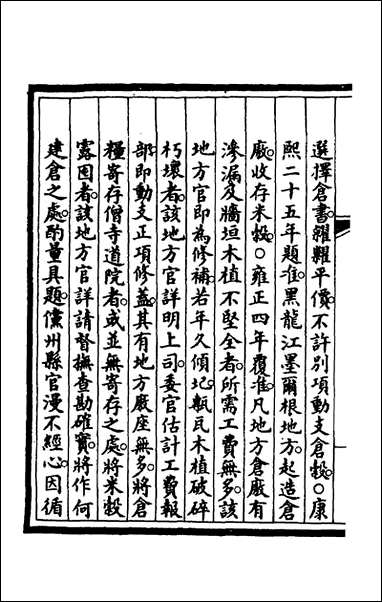 選擇倉書糴糶平價不許別項動支倉穀○康
熙二十五年題准黑龍江墨爾根地方起造倉
厫收存米穀○雍正四年覆准凡地方倉厫有
滲漏及牆垣木植不堅全者所需工費無多該
地方官即為修補若年久傾圮甎瓦木植破碎
朽壞者該地方官詳明上司委官估計工費報
部即動支正項修蓋其有地方厫座無多將倉
糧寄存僧寺道院者或並無寄存之處將米穀
露囤者該地方官詳請督撫查勘確實將作何
建倉之處酌量具題儻州縣官漫不經心因循